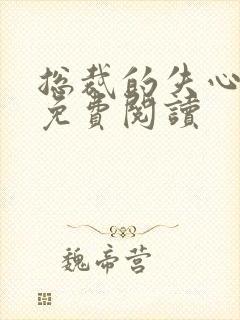 总裁的失心
免費閱讀
魏帝营